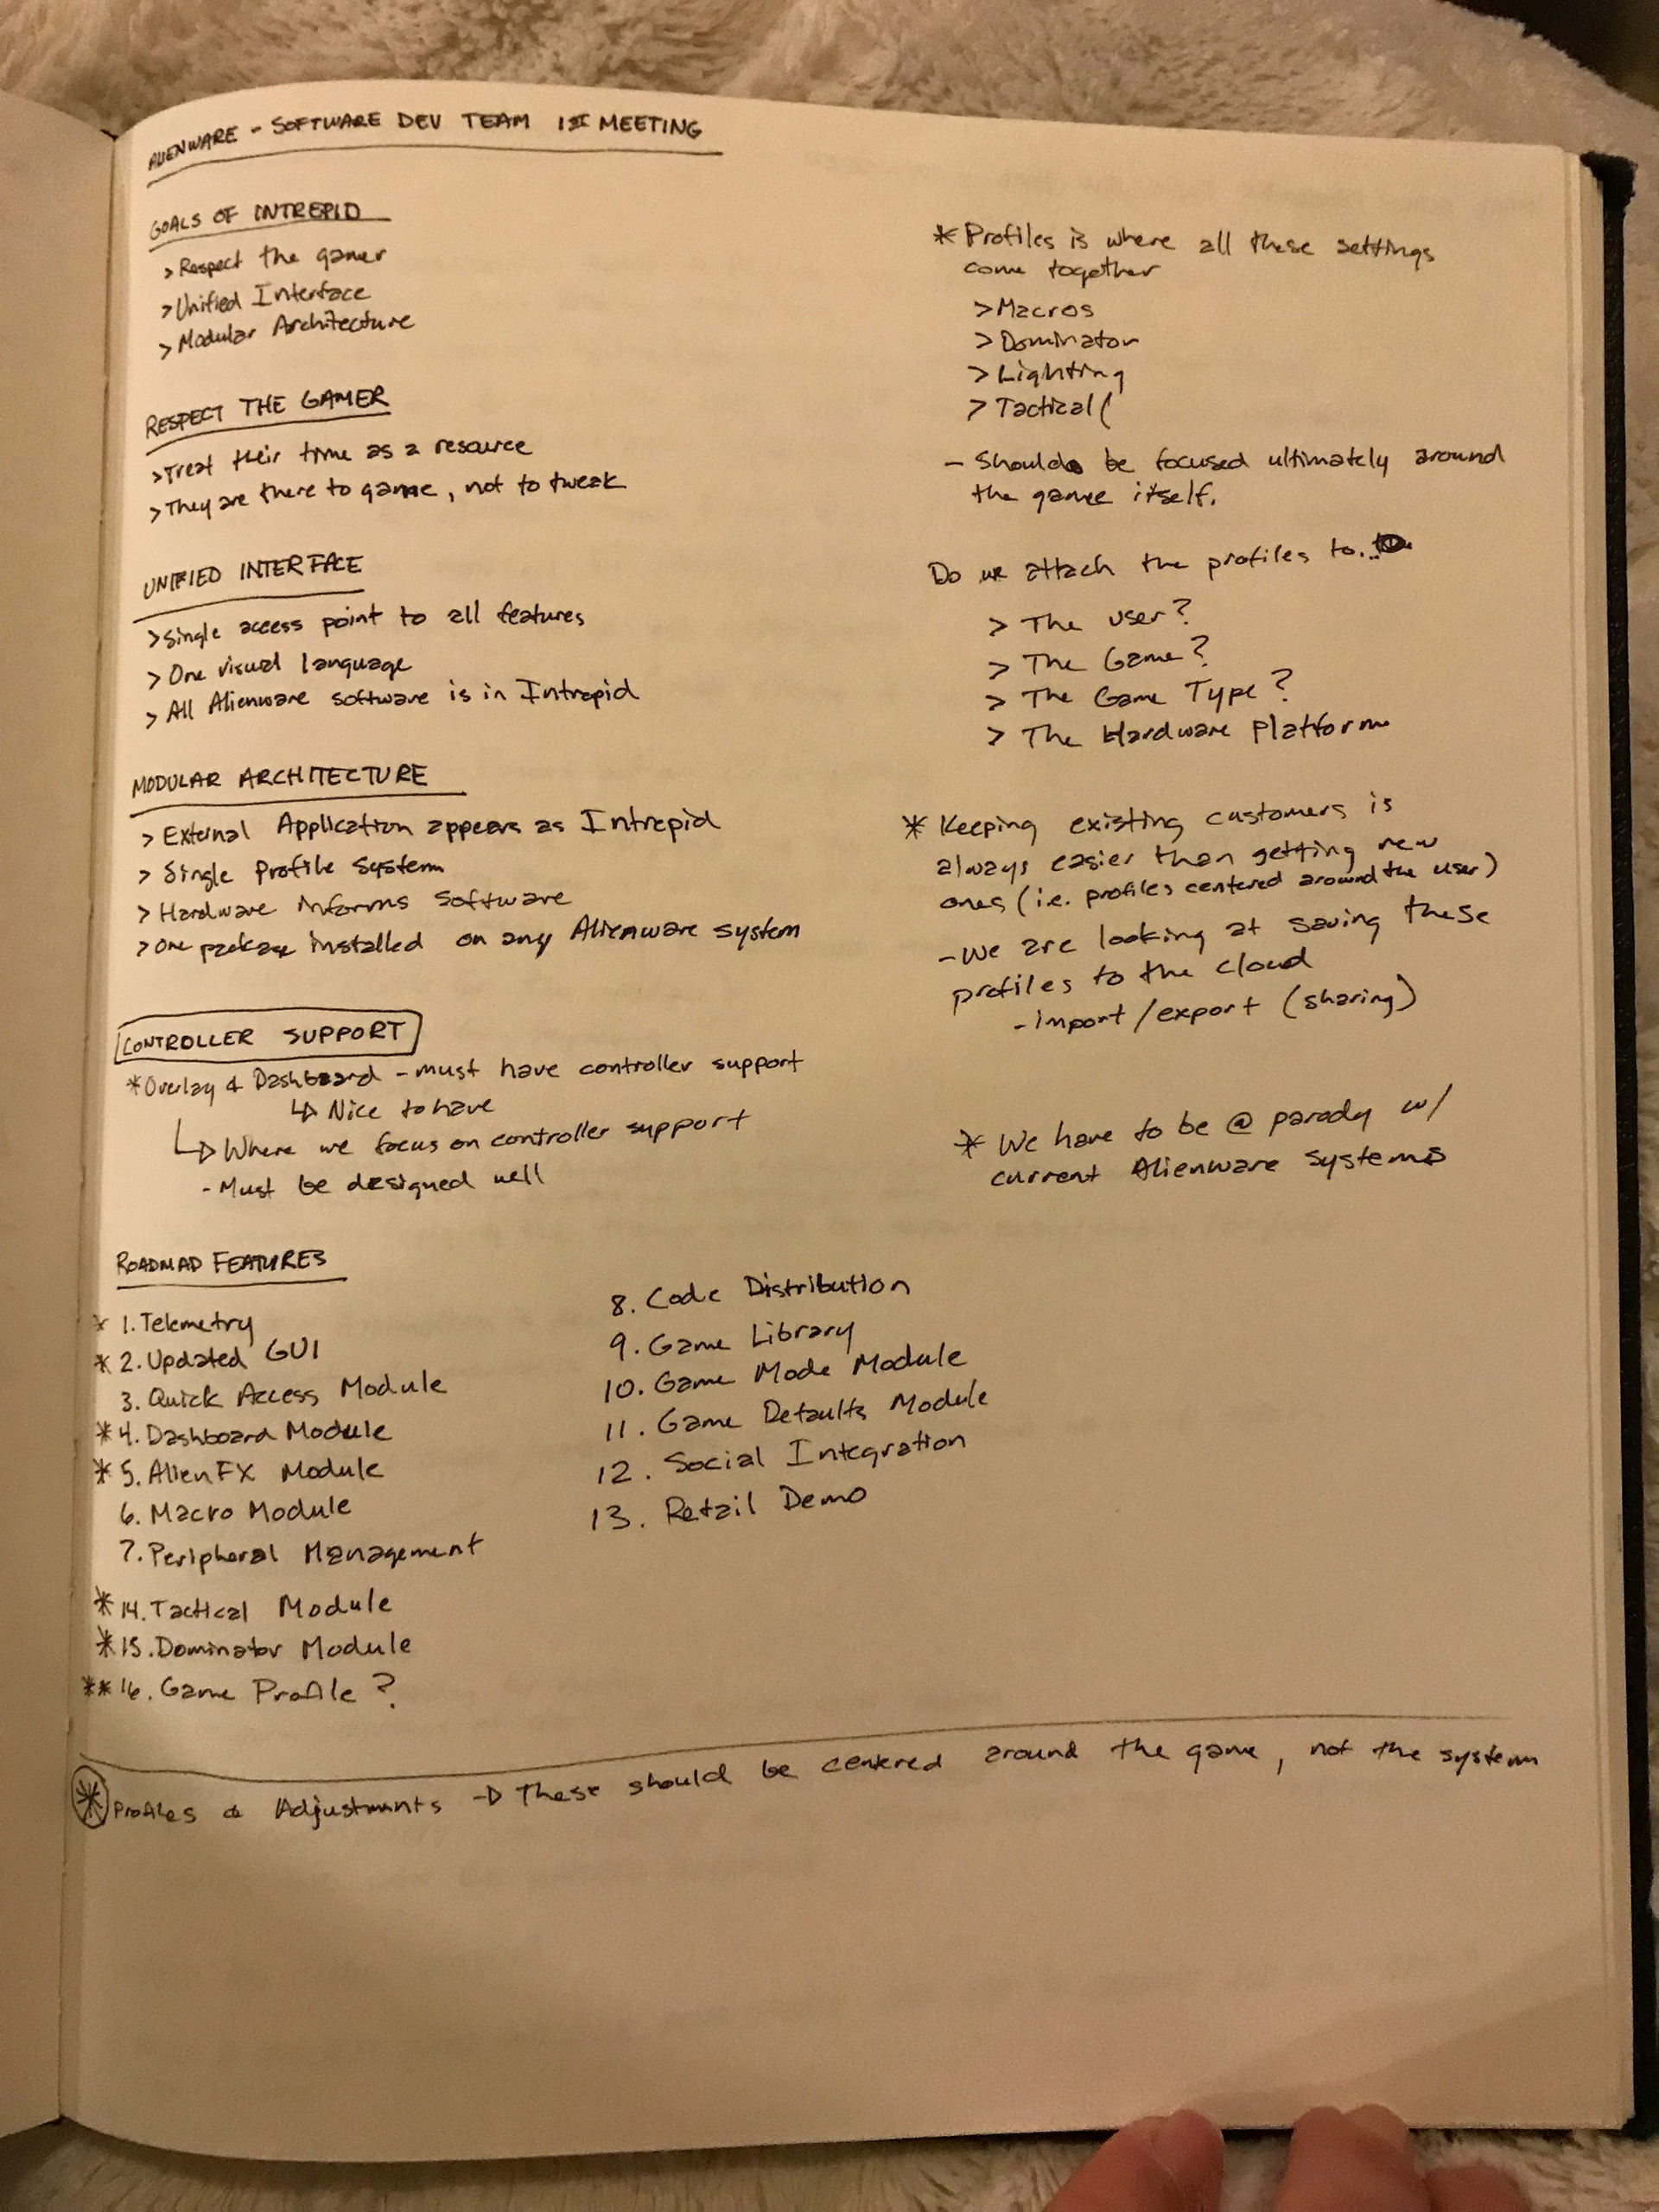 ALIENWARE - SOFTWARE DEV TEAM 1ST MEETING
GOALS OF INTREPID
> Respect the gamer
> Unified Interface
> Modular Architecture
RESPECT THE GAMER
> Treat their time as a resource
> They are there to game, not to tweak
UNIFIED INTERFACE
> Single access point to all features
> One visual language
> All Alienware software is in Intrepid
MODULAR ARCHITECTURE
> External Application appears as Intrepid
> Single Profile System
> Hardware informs Software
> One package installed on any Alienware system
CONTROLLER SUPPORT
* Overlay & Dashboard - must have controller support
↳ Nice to have
↳ Where we focus on controller support
- Must be designed well
ROADMAP FEATURES
* 1. Telemetry
* 2. Updated GUI
3. Quick Access Module
* 4. Dashboard Module
* 5. AlienFX Module
6. Macro Module
7. Peripheral Management
* 14. Tactical Module
* 15. Dominator Module
** 16. Game Profile ?
8. Code Distribution
9. Game Library
10. Game Mode Module
11. Game Defaults Module
12. Social Integration
13. Retail Demo
* Profiles is where all these settings
come together
> Macros
> Dominator
> Lighting
> Tactical (
- Should be focused ultimately around
the game itself.
Do we attach the profiles to...
> The user?
> The Game?
> The Game Type?
> The Hardware Platform
* Keeping existing customers is
always easier than getting new
ones (i.e. profiles centered around the user)
- We are looking at saving these
profiles to the cloud
- import/export (sharing)
* We have to be @ parody w/
current Alienware systems
* Profiles & Adjustments → These should be centered around the game, not the system